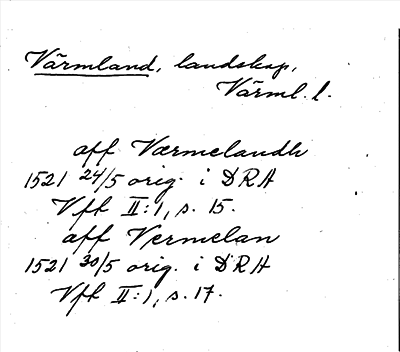 Värmland, landskap,
Värml. l.
aff Værmelandh
1521 24/5 orig. i DRA
Vfh II:1, s. 15.
aff Vermelan
1521 30/5 orig. i DRA
Vfh II:1, s. 17.